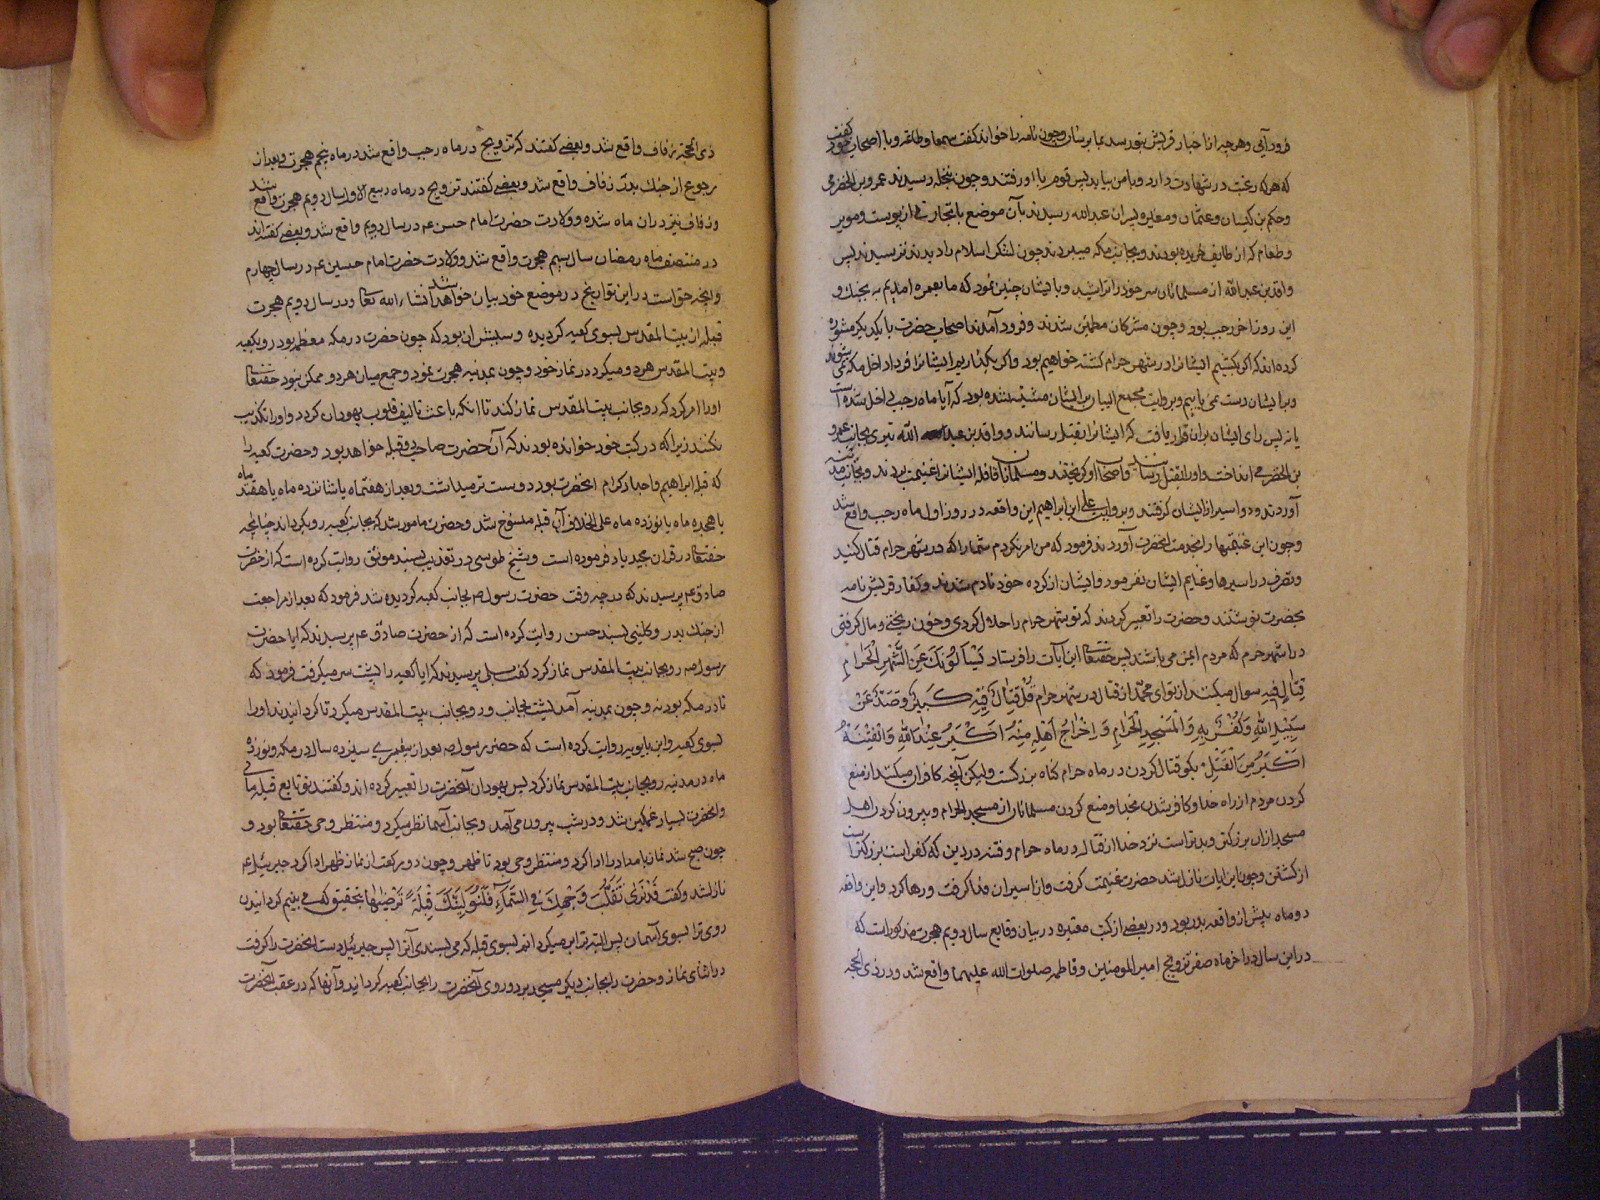 فرود آئی و هر چه از اخبار قریش بتو رسد بما برسان و چون نامه را خواند گفت سمعا و طاعة و با اصحاب خود گفت
که هر که رغبت در شهادت دارد و با من بیاید پس قوم با او رفتند و چون بنخله رسیدند عمرو بن الحضرمی
و حکم بن کیسان و عثمان و مغیره پسران عبدالله رسیدند بآن موضع با تجارتی از پوست و مویز
و طعام که از طایف خریده بودند و بجانب مکه میبردند چون لشکر اسلام را دیدند ترسیدند پس
واقد بن عبدالله از مسلمانان سر خود را تراشید و با ایشان چنین نمود که ما بعمره آمدیم نه بجنگ و
این روز آخر رجب بود و چون مشرکان مطمئن شدند و فرود آمدند اصحاب حضرت با یکدیگر مشوره
کرده اند که اگر بکشیم ایشانرا در شهر حرام کشته خواهیم بود و اگر بگذاریم ایشانرا فردا داخل مکه میشوند
و بر ایشان دست نمی یابیم و بروایت مجمع البیان بر ایشان مشتبه شده بود که آیا ماه رجب داخل شده است
یا نه پس رای ایشان بر آن قرار یافت که ایشانرا بقتل رسانند و واقد بن عبد الله تیری بجانب عمرو
بن الحضرمی انداخت و او را بقتل رسانید و اصحاب او گریختند و مسلمانان قافله ایشانرا غنیمت بردند و بجانب مدینه
آوردند و دو اسیر از ایشان گرفتند و بروایت علی ابن ابراهیم این واقعه در روز اول ماه رجب واقع شد
و چون این غنیمتها را بخدمت آنحضرت آوردند فرمود که من امر نکردم شما را که در شهر حرام قتال کنید
و تصرف در اسیرها و غنایم ایشان نفرمود و ایشان از کرده خود نادم شدند و کفار قریش نامه
بحضرت نوشتند و حضرت را تعییر کردند که تو شهر حرام را حلال کردی و خون ریختی و مال گرفتی
در شهر حرم که مردم ایمن می باشند پس حقتعالی این آیات را فرستاد یَسْأَلُونَكَ عَنِ الشَّهْرِ الْحَرامِ
قِتالٍ فِيهِ سوال میکنند از تو ای محمد از قتال در شهر حرام قُلْ قِتالٌ فِيهِ كَبِيرٌ وَصَدٌّ عَنْ
سَبِيلِ اللهِ وَكُفْرٌ بِهِ وَالْمَسْجِدِ الْحَرامِ وَإِخْراجُ أَهْلِهِ مِنْهُ أَكْبَرُ عِنْدَ اللهِ وَالْفِتْنَةُ
أَكْبَرُ مِنَ الْقَتْلِ بگو قتال کردن در ماه حرام گناه بزرگست ولیکن آنچه کافران میکنند از منع
کردن مردم از راه خدا و کافر شدن بخدا و منع کردن مسلمانان از مسجد الحرام و بیرون کردن اهل
مسجد از آن بزرگتر و بدتر است نزد خدا از قتال در ماه حرام و فتنه در دین که کفر است بزرگتر است
از کشتن و چون این آیات نازل شد حضرت غنیمت گرفت و از اسیران فدا گرفت و رها کرد و این واقعه
دو ماه پیش از واقعه بدر بود و در بعضی از کتب معتبره در بیان وقایع سال دویم هجرت مذکور است که
در این سال در آخر ماه صفر تزویج امیرالمومنین و فاطمه صلوات الله علیهما واقع شد و در ذی الحجه
ذی الحجه زفاف واقع شد و بعضی گفتند که تزویج در ماه رجب واقع شد در ماه پنجم هجرت و بعد از
رجوع از جنك بدر زفاف واقع شد و بعضی گفتند تزویج در ماه ربیع الاول سال دویم هجرت واقع شد
و زفاف نیز در آن ماه شده و ولادت حضرت امام حسن عم در سال دویم واقع شد و بعضی گفته اند
در منتصف ماه رمضان سال سیم هجرت واقع شد و ولادت حضرت امام حسین عم در سال چهارم
و آنچه حق است در این تواریخ در موضع خود بیان خواهد شد انشاء الله تعا و در سال دویم هجرت
قبله از بیت المقدس بسوی کعبه گردیده و سببش آن بود که چون حضرت در مکه معظمه بود رو بکعبه
و بیت المقدس هر دو میکرد در نماز خود و چون بمدینه هجرت نمود و جمع میان هر دو ممکن نبود حقتعالی
او را امر کرد که رو بجانب بیت المقدس نماز کند تا انکه باعث تالیف قلوب یهودان گردد و او را تکذیب
نکنند زیرا که در کتب خود خوانده بودند که آن حضرت صاحب دو قبله خواهد بود و حضرت کعبه را
که قبله ابراهیم و اجداد کرام آنحضرت بود دوست تر میداشت و بعد از هفتماه یا شانزده ماه یا هفده ماه
یا هجده ماه یا نوزده ماه علی الخلاف آن قبله منسوخ شد و حضرت مامور شد که بجانب کعبه رو بگرداند چنانچه
حقتعالی در قران مجید یاد فرموده است و شیخ طوسی در تهذیب بسند موثق روایت کرده است که از حضرت
صادق عم پرسیدند که در چه وقت حضرت رسول صم بجانب کعبه گردیده شد فرمود که بعد از مراجعت
از جنك بدر و کلینی بسند حسن روایت کرده است که از حضرت صادق عم پرسیدند که ایا حضرت
رسول صم رو بجانب بیت المقدس نماز کرد گفت بلی پرسیدند که ایا کعبه را پشت سر میکرفت فرمود که
تا در مکه بود نه و چون بمدینه آمد پشت بجانب و رو بجانب بیت المقدس میکرد تا گردانیدند او را
بسوی کعبه و ابن بابویه روایت کرده است که حضرت رسول صم بعد از پیغمبری سیزده سال در مکه و نوزده
ماه در مدینه رو بجانب بیت المقدس نماز کرد پس یهودان آنحضرت را تعییر کرده اند و گفتند تو تابع قبله مائی
و آنحضرت بسیار غمگین شد و در شب بیرون می آمد و بجانب آسمان نظر میکرد و منتظر وحی حقتعالی بود و
چون صبح شد نماز بامداد را ادا کرد و منتظر وحی بود تا ظهر و چون دو رکعت از نماز ظهر ادا کرد جبرئیل عم
نازل شد و گفت قَدْ نَرٰی تَقَلُّبَ وَجْهِكَ فِی السَّمآءِ فَلَنُوَلِّيَنَّكَ قِبْلَةً تَرْضٰیها بتحقیق که می بینیم گردانیدن
روی ترا بسوی آسمان پس البته ترا میگردانیم بسوی قبله که می پسندی آنرا پس جبرئیل دست آنحضرت را گرفت
در اثنای نماز و حضرت را بجانب دیگر مسجد برد و روی آنحضرت را بجانب کعبه گردانید و آنها که در عقب آنحضرت